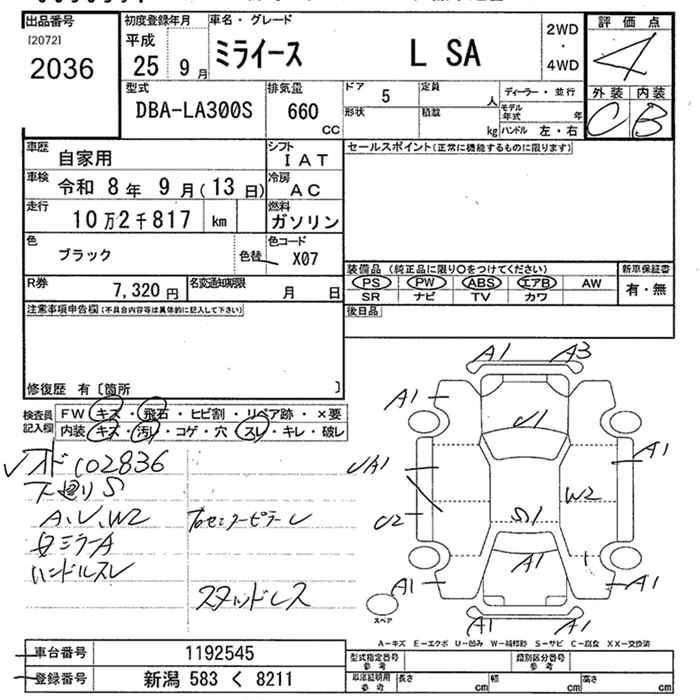 出品番号
[2072]
2036
初度登録年月
平成
25 9月
車名・グレード
ミライース L SA
2WD
・
4WD
評価点
4
外装 内装
C B
型式
DBA-LA300S
排気量
660
CC
ドア 5
定員
人
ディーラー・並行
形状
積載
kg
モデル年式
年
ハンドル 左・右
車歴
自家用
シフト
IAT
車検
令和 8年 9月(13日)
冷房
AC
走行
10万2千817 km
燃料
ガソリン
色
ブラック
色替
色コード
X07
R券
7,320円
名変通知期限
月 日
セールスポイント(正常に機能するものに限ります)
装備品(純正品に限り○をつけてください)
新車保証書
PS PW ABS エアB AW
有・無
SR ナビ TV カワ
後日品
注意事項申告欄(不具合内容等は具体的に記入して下さい)
修復歴 有〔箇所 〕
検査員記入欄
FW キズ・飛石・ヒビ割・リペア跡・×要
内装 キズ・汚レ・コゲ・穴・スレ・キレ・破レ
オド102836
下廻りS
A、U、W2
ミラーA
ハンドルスレ
スタッドレス
A1 A3
A1
U1
UA1
A1
U2
W2
S1
A1
A1
A1
A1 A1
スペア
A-キズ E-エクボ U-凹み W-補修跡 S-サビ C-腐食 XX-交換済
車台番号
1192545
登録番号
新潟 583 く 8211
型式指定番号
参考
類別区分番号
参考
車庫証明用
参考
長さ cm
幅 cm
高さ cm